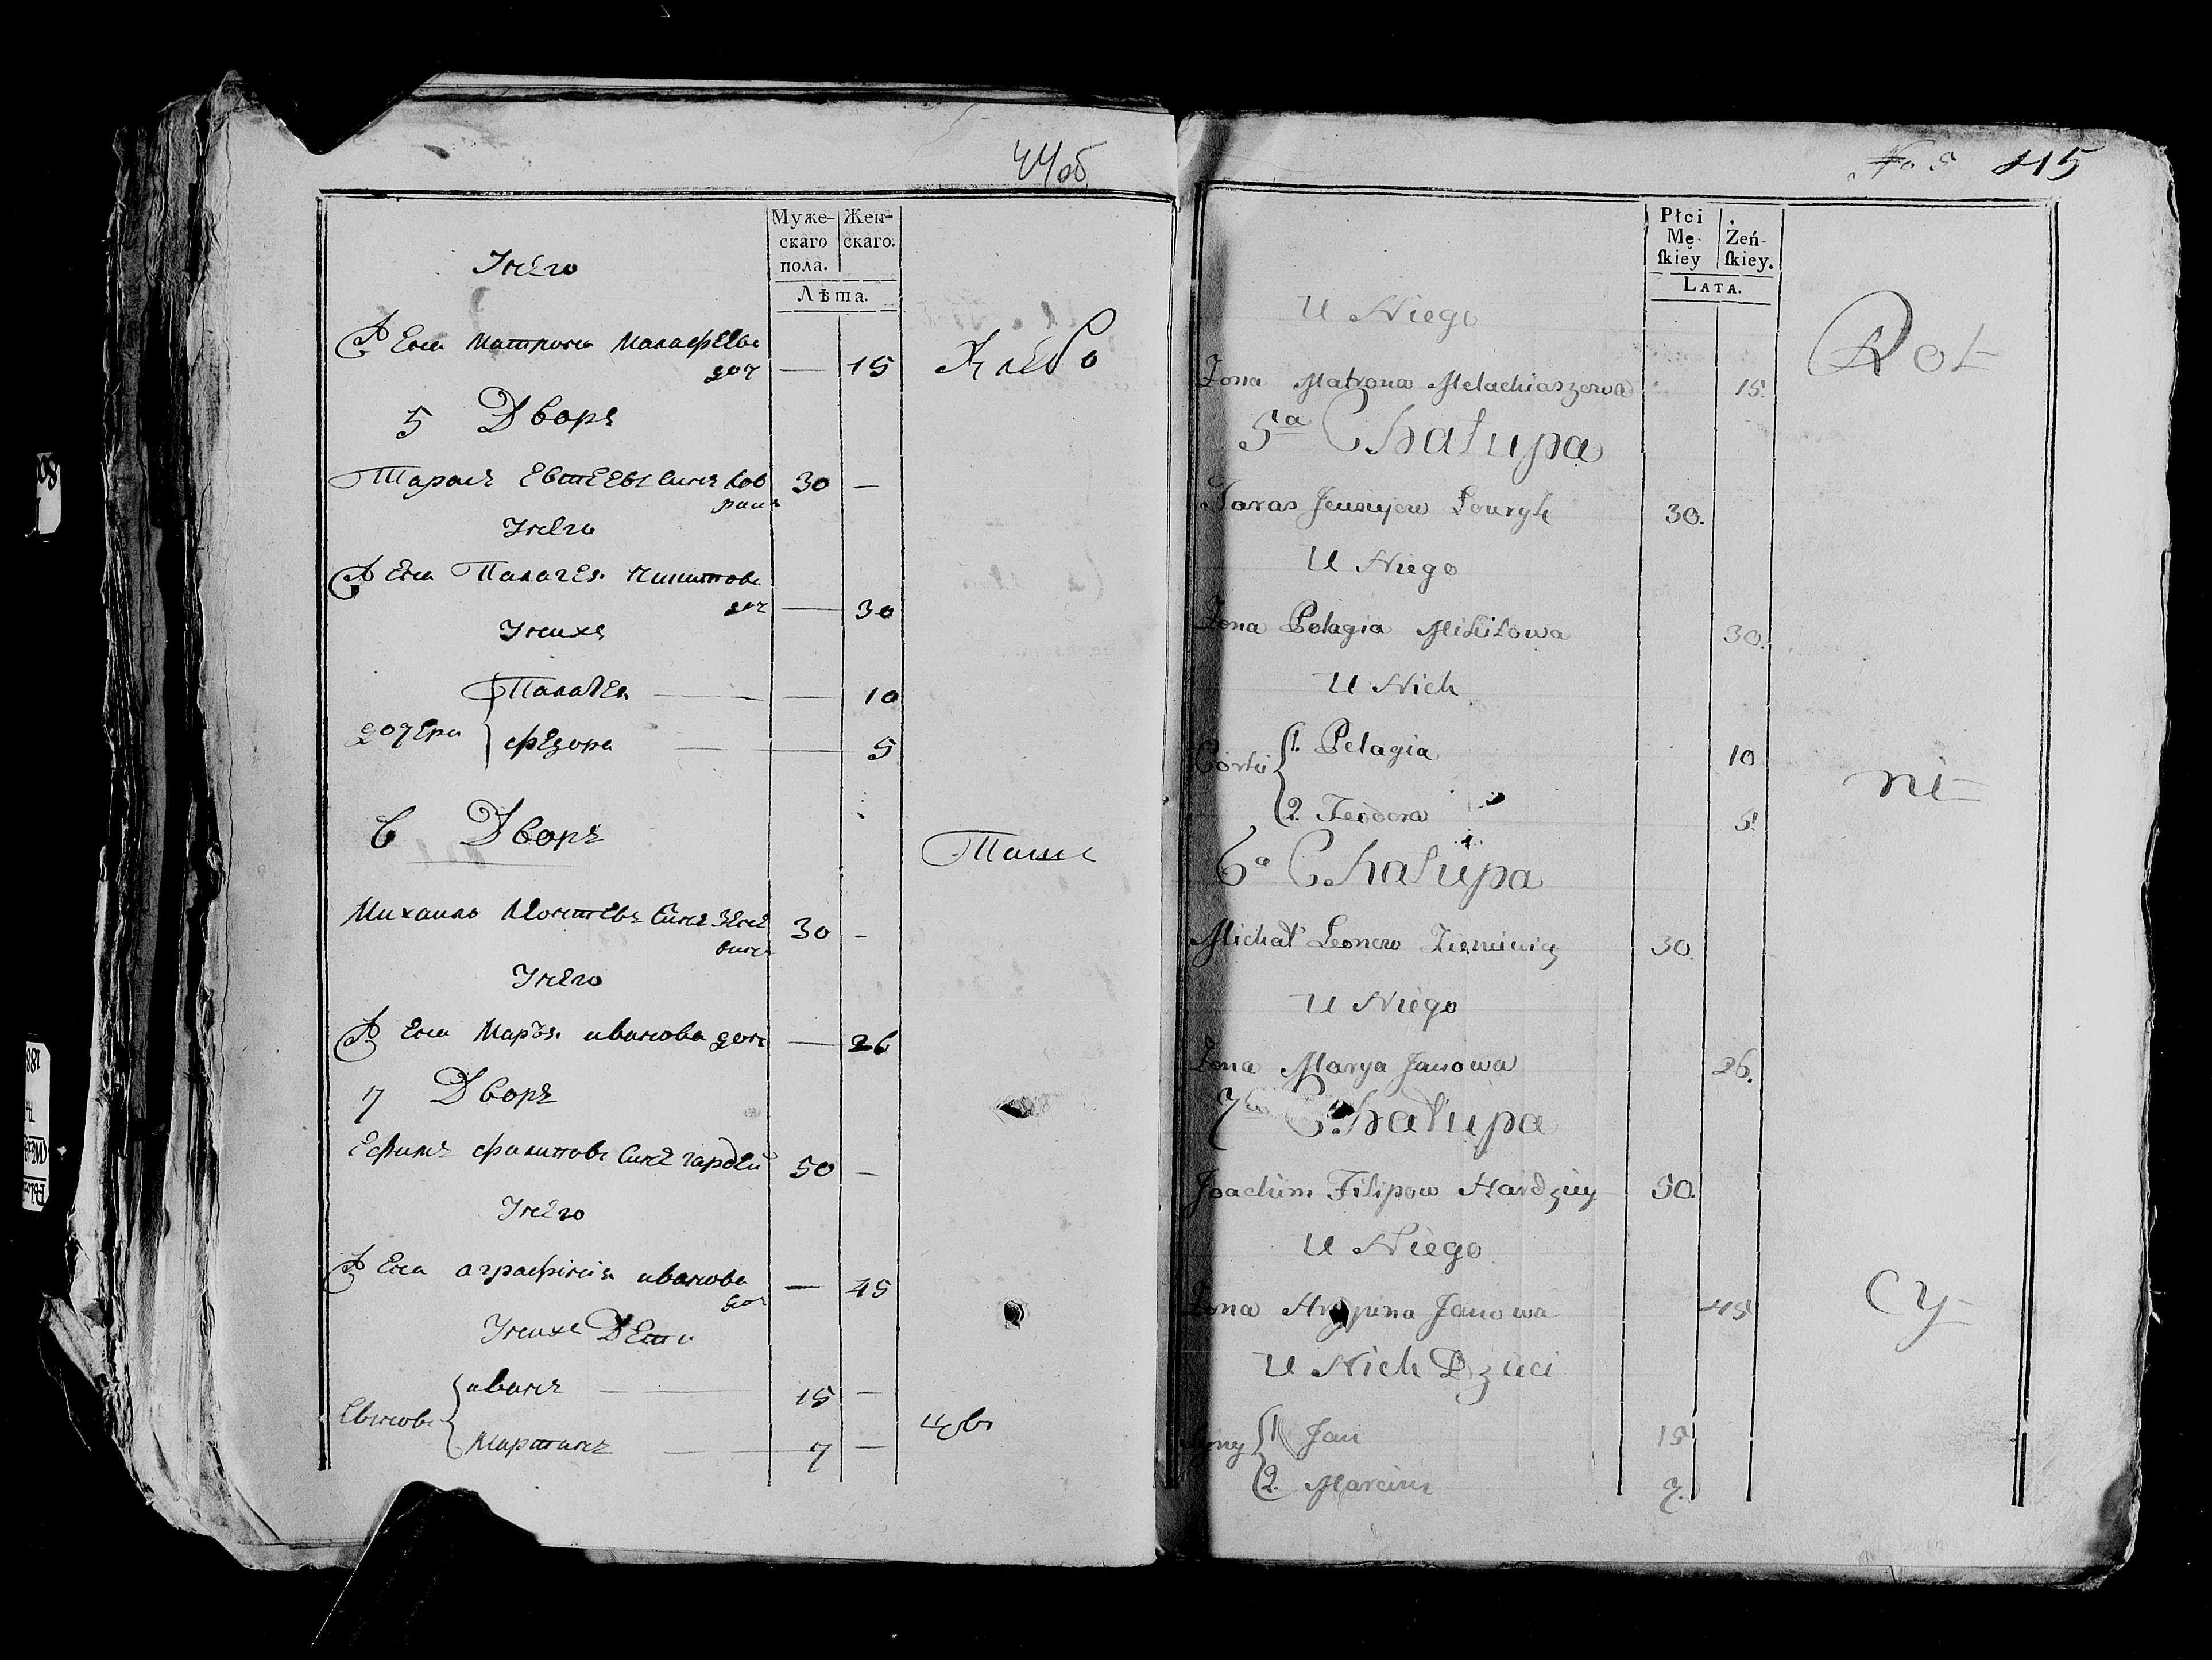 44об
Муже-
скаго
пола.
Жен-
скаго.
Лѣта.
Унего
Жена Матрона Малафеева
доч — 15
Хлебо
5 Дворъ
Тарасъ Евтеевъ синъ Лов
рикъ 30 —
Унего
Жена Палагея Микитова
доч — 30
Унихъ
дочери
Палагея — 10
Федора — 5
6 Дворъ
Паше
Михаило Леонтевъ Синъ Зене
вичъ 30 —
Унего
Жена Маръя иванова доч — 26
7 Дворъ
Ефимъ филиповъ Синъ гардей 50 —
Унего
Жена аграфиня иванова
доч — 45
Унихъ Дети
Синове
иванъ 15 —
Мартинъ 7 —
цы
No 5 415
Płci
Mę-
ſkiey
Żeń-
ſkiey.
Lata.
U Niego
Rol-
Żona Matrona Melachiaszowa 15.
5a Chałupa
Taras Jewsiejew Łouryk 30.
U Niego
Żona Pelagia Mikitowa 30.
U Nich
Córki
1. Pelagia 10
ni-
2. Teodora 5.
6a Chałupa
Michał Leonow Zieniewicz 30.
U Niego
Żona Marya Janowa 26.
7a Chałupa
Joachim Filipow Hardziey 50.
U Niego
cy-
Żona Janowa 45
U Nich Dzieci
Syny
1. Jan 15
2. Marcin 7.